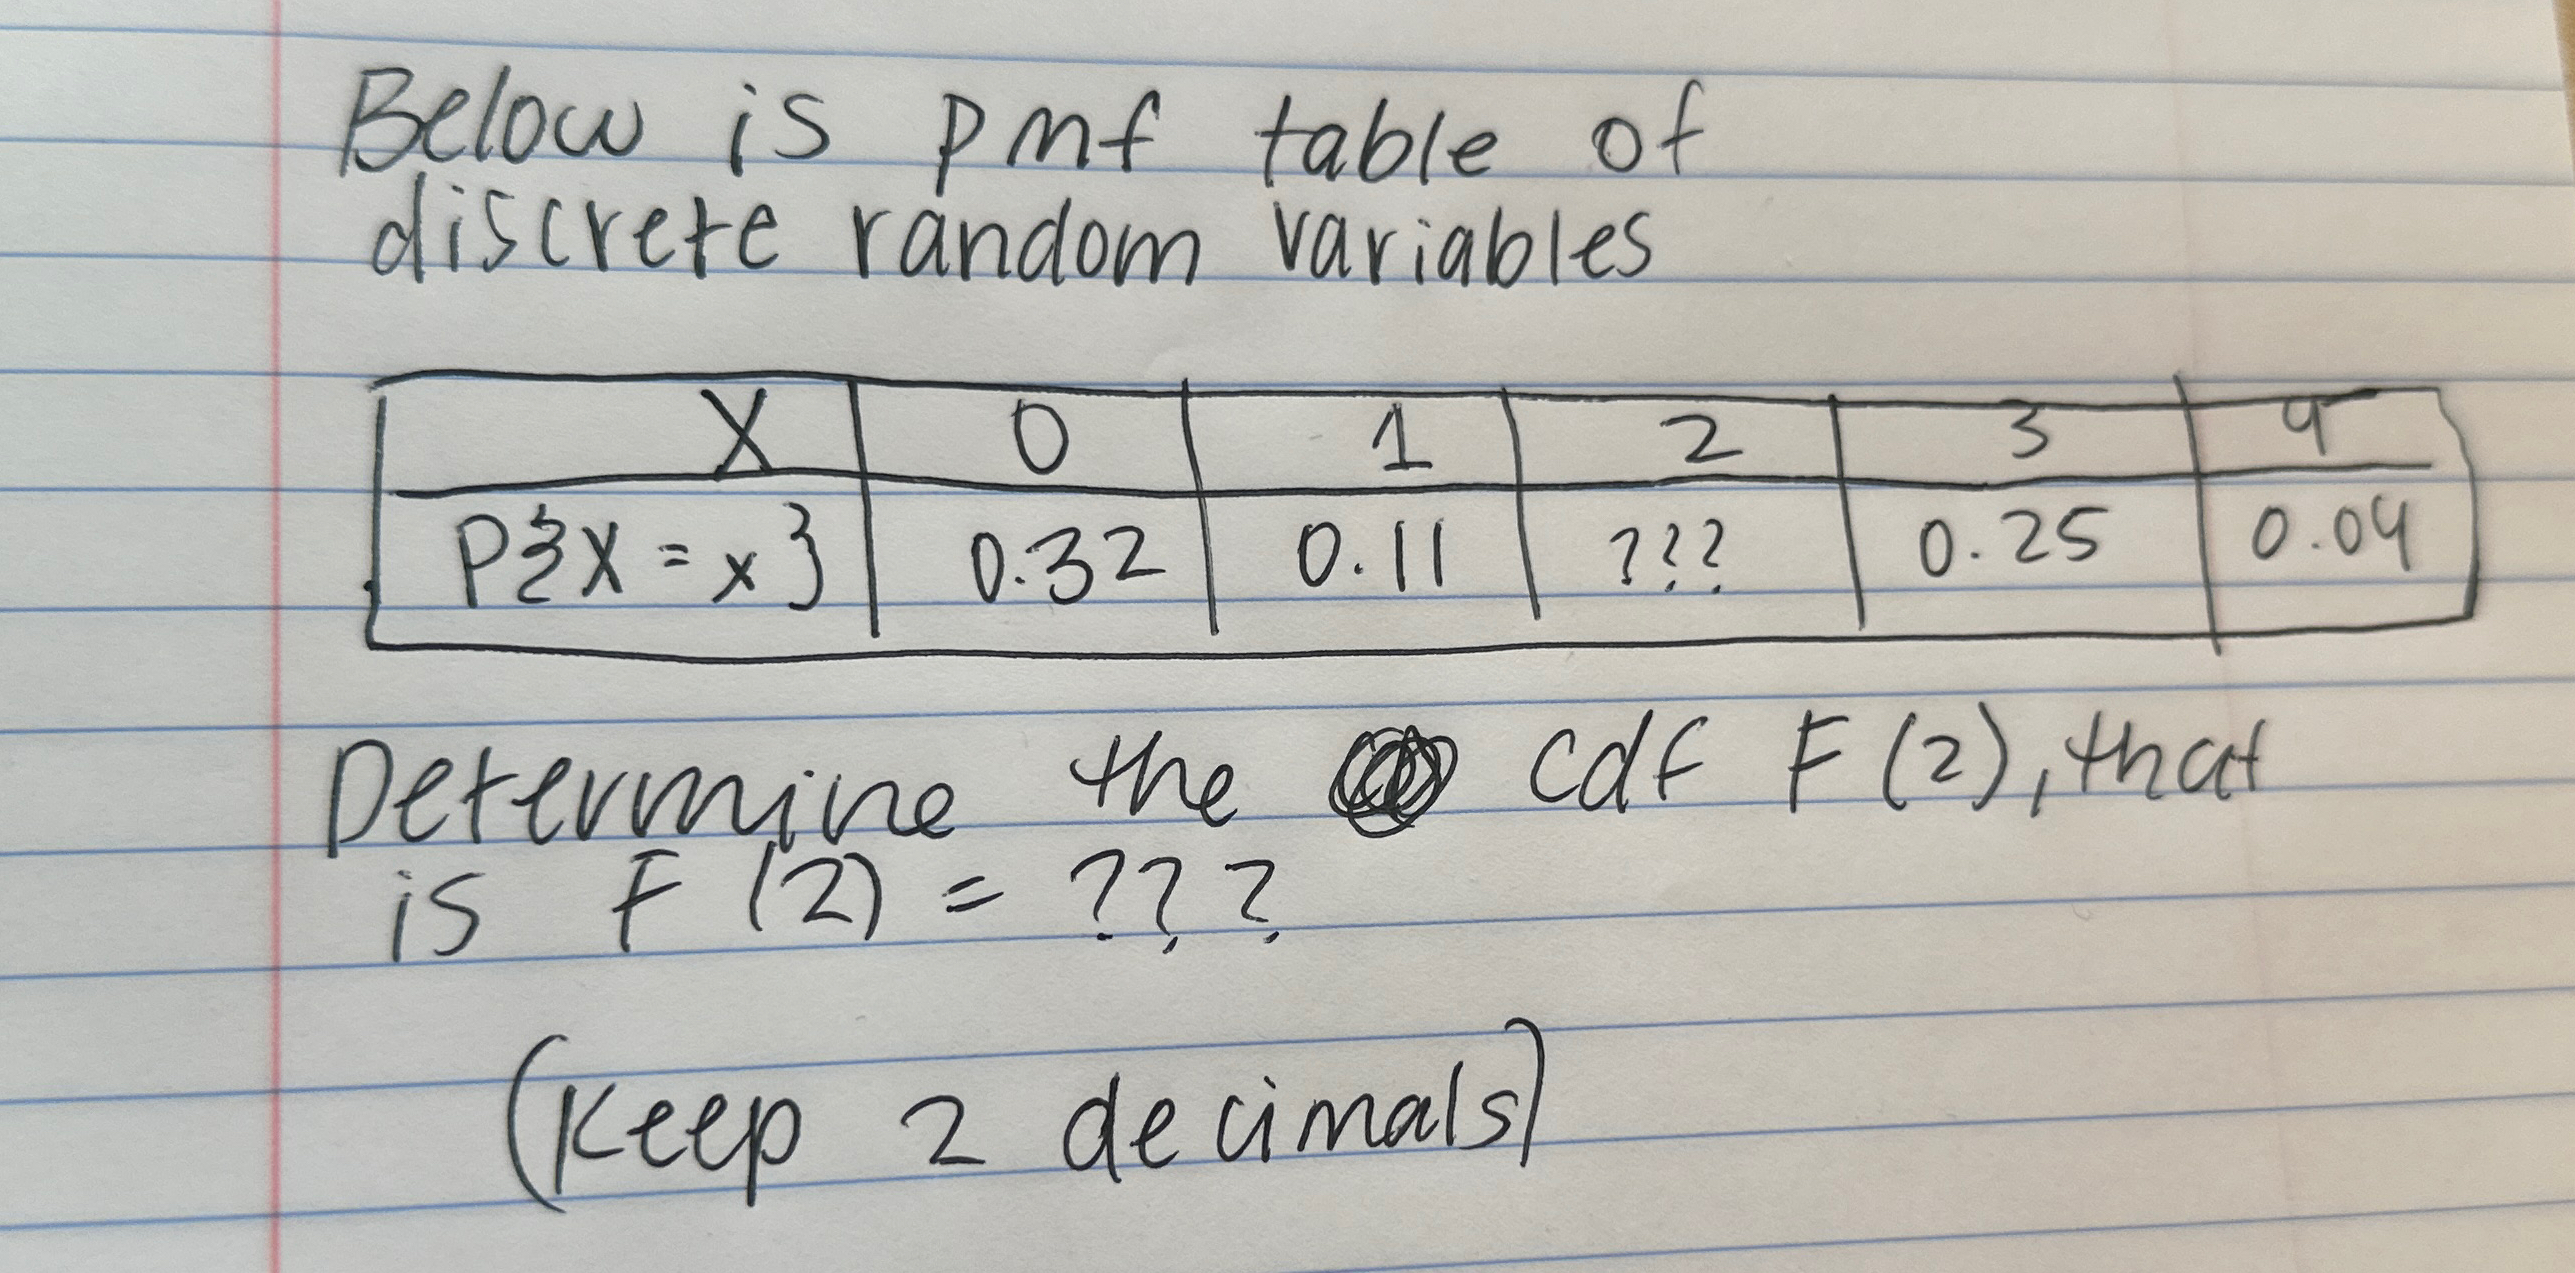 Below is pmf table of
discrete random variables
X 0 1 2 3 4
P{X = x} 0.32 0.11 ??? 0.25 0.04
Determine the cdf F(2), that
is F(2) = ???
(Keep 2 decimals)